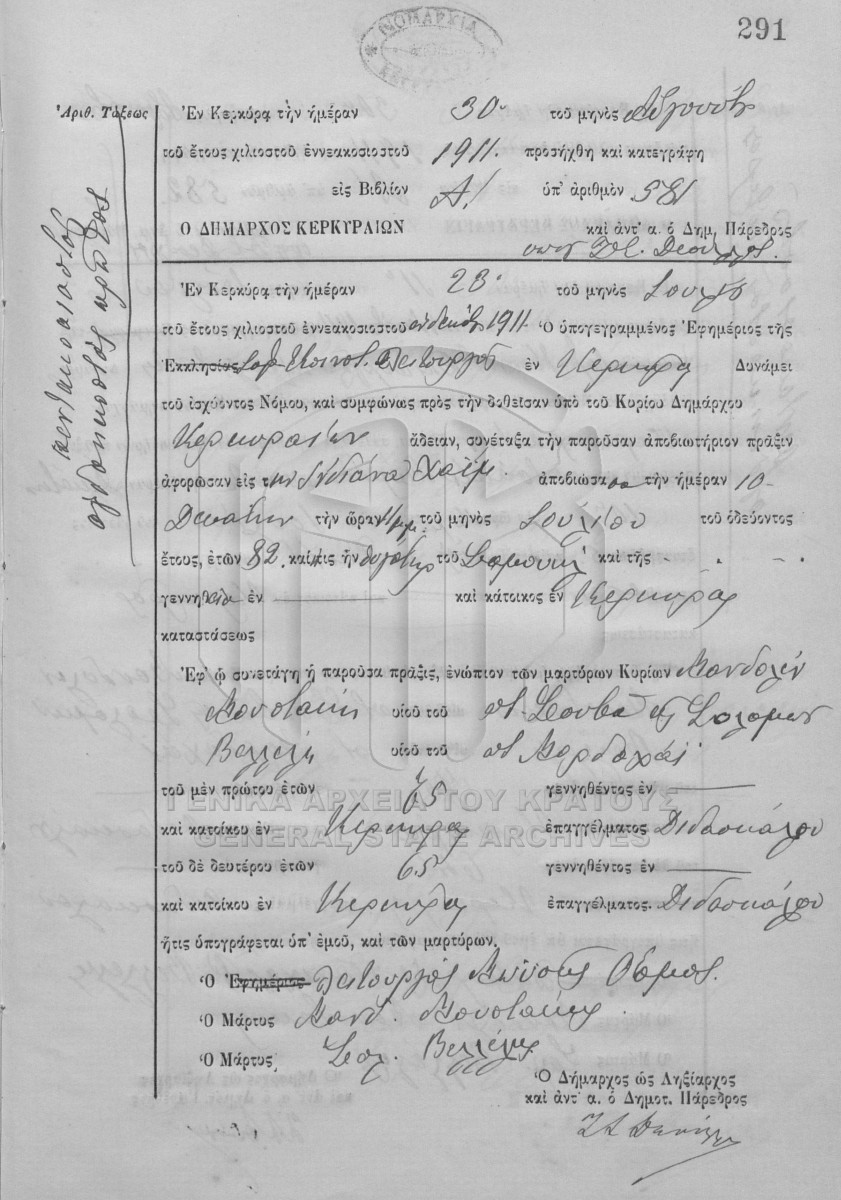 291
ΝΟΜΑΡΧΙΑ
Ἀριθ. Τάξεως
πεντακοσιοστός
ὀγδοηκοστός πρῶτος
Ἐν Κερκύρᾳ τὴν ἡμέραν 30 τοῦ μηνὸς Αὐγούστου
τοῦ ἔτους χιλιοστοῦ ἐννεακοσιοστοῦ 1911. προσήχθη καὶ κατεγράφη
εἰς Βιβλίον Α! ὑπ' ἀριθμὸν 581
Ὁ ΔΗΜΑΡΧΟΣ ΚΕΡΚΥΡΑΙΩΝ καὶ ἀντ' α. ὁ Δημ. Πάρεδρος
Ἐν Κερκύρᾳ τὴν ἡμέραν 28 τοῦ μηνὸς Ἰουλίου
τοῦ ἔτους χιλιοστοῦ ἐννεακοσιοστοῦ ἑνδεκάτου 1911. Ὁ ὑπογεγραμμένος Ἐφημέριος τῆς
Ἐκκλησίας Ἰσρ. Κοινοτ. Λειτουργός ἐν Κερκύρᾳ Δυνάμει
τοῦ ἰσχύοντος Νόμου, καὶ συμφώνως πρὸς τὴν δοθεῖσαν ὑπὸ τοῦ Κυρίου Δημάρχου
Κερκυραίων ἄδειαν, συνέταξα τὴν παροῦσαν ἀποβιωτήριον πρᾶξιν
ἀφορῶσαν εἰς τὴν Χαΐμ. ἀποβιώσασα τὴν ἡμέραν 10
Δεκάτην τὴν ὥραν 11 μμ τοῦ μηνὸς Ἰουλίου τοῦ ὁδεύοντος
ἔτους, ἐτῶν 82. καὶ εἰς ἣν θυγάτηρ τοῦ Σαμουήλ καὶ τῆς
γεννηθεῖσα ἐν καὶ κάτοικος ἐν Κερκύρᾳ
καταστάσεως
Ἐφ' ᾧ συνετάγη ἡ παροῦσα πρᾶξις, ἐνώπιον τῶν μαρτύρων Κυρίων Μανδολίν
Μουστάκη υἱοῦ τοῦ ποτ. Ἰουδᾶ καὶ Σολομών
Βελλέλη υἱοῦ τοῦ ποτ. Μορδοχάι
τοῦ μὲν πρώτου ἐτῶν 65 γεννηθέντος ἐν
καὶ κατοίκου ἐν Κερκύρᾳ ἐπαγγέλματος Διδασκάλου
τοῦ δὲ δευτέρου ἐτῶν 65 γεννηθέντος ἐν
καὶ κατοίκου ἐν Κερκύρᾳ ἐπαγγέλματος. Διδασκάλου
ἥτις ὑπογράφεται ὑπ' ἐμοῦ, καὶ τῶν μαρτύρων.
Ὁ Ἐφημέριος Λειτουργός Μωϋσῆς Ὄσμος.
Ὁ Μάρτυς Μανδ. Μουστάκης
Ὁ Μάρτυς Σολ. Βελλέλης
Ὁ Δήμαρχος ὡς Ληξίαρχος
καὶ ἀντ' α. ὁ Δημοτ. Πάρεδρος
ΓΕΝΙΚΑ ΑΡΧΕΙΑ ΤΟΥ ΚΡΑΤΟΥΣ
GENERAL STATE ARCHIVES